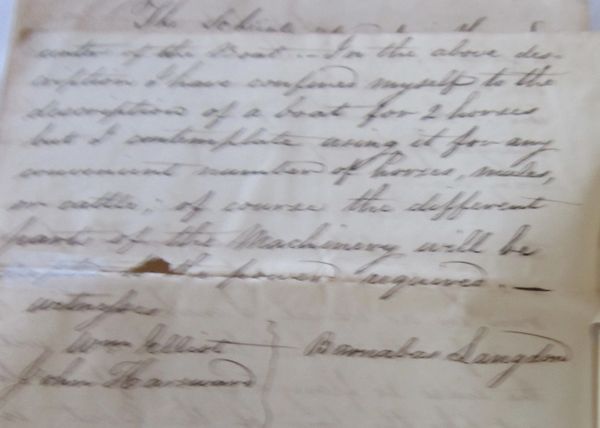 The
center of the Boat.— In the above des-
cription I have confined myself to the
description of a boat for 2 horses
but I contemplate using it for any
convenient number of horses, mules,
or cattle; of course the different
parts of the Machinery will be
to the power required.—
witnesses
Wm Elliot
Barnabas Langdon
John Harwood